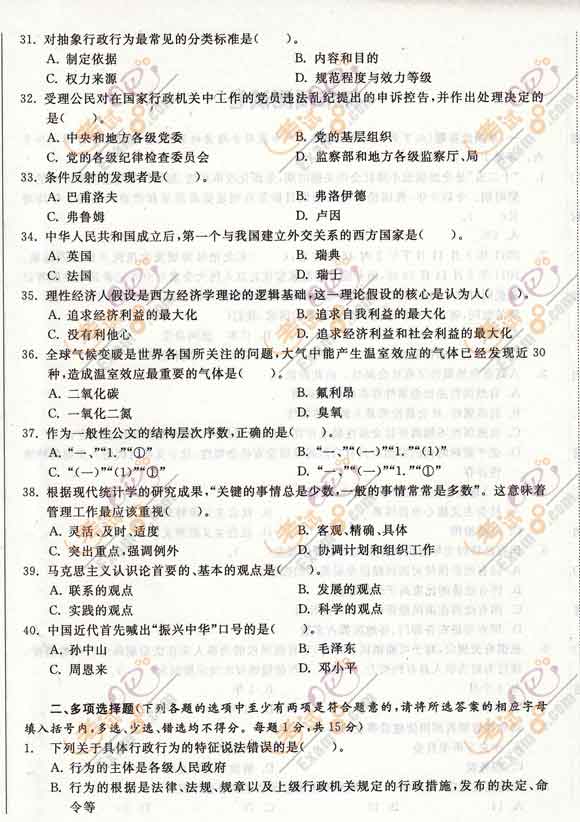 31. 对抽象行政行为最常见的分类标准是(　　)。
A. 制定依据　　B. 内容和目的
C. 权力来源　　D. 规范程度与效力等级
32. 受理公民对在国家行政机关中工作的党员违法乱纪提出的申诉控告,并作出处理决定的
是(　　)。
A. 中央和地方各级党委　　B. 党的基层组织
C. 党的各级纪律检查委员会　　D. 监察部和地方各级监察厅、局
33. 条件反射的发现者是(　　)。
A. 巴甫洛夫　　B. 弗洛伊德
C. 弗鲁姆　　D. 卢因
34. 中华人民共和国成立后,第一个与我国建立外交关系的西方国家是(　　)。
A. 英国　　B. 瑞典
C. 法国　　D. 瑞士
35. 理性经济人假设是西方经济学理论的逻辑基础,这一理论假设的核心是认为人(　　)。
A. 追求经济利益的最大化　　B. 追求自我利益的最大化
C. 没有利他心　　D. 追求经济利益和社会利益的最大化
36. 全球气候变暖是世界各国所关注的问题,大气中能产生温室效应的气体已经发现近 30
种,造成温室效应最重要的气体是(　　)。
A. 二氧化碳　　B. 氟利昂
C. 一氧化二氮　　D. 臭氧
37. 作为一般性公文的结构层次序数,正确的是(　　)。
A. “一、”“1.”“①”　　B. “一、”“(一)”“1.”“(1)”
C. “(一)”“(1)”“①”　　D. “一、”“(一)”“1.”“①”
38. 根据现代统计学的研究成果,“关键的事情总是少数,一般的事情常常是多数”。这意味着
管理工作最应该重视(　　)。
A. 灵活、及时、适度　　B. 客观、精确、具体
C. 突出重点,强调例外　　D. 协调计划和组织工作
39. 马克思主义认识论首要的、基本的观点是(　　)。
A. 联系的观点　　B. 发展的观点
C. 实践的观点　　D. 科学的观点
40. 中国近代首先喊出“振兴中华”口号的是(　　)。
A. 孙中山　　B. 毛泽东
C. 周恩来　　D. 邓小平
二、多项选择题(下列各题的选项中至少有两项是符合题意的,请将所选答案的相应字母
填入括号内,多选、少选、错选均不得分。每题 1 分,共 15 分)
1. 下列关于具体行政行为的特征说法错误的是(　　)。
A. 行为的主体是各级人民政府
B. 行为的根据是法律、法规、规章以及上级行政机关规定的行政措施,发布的决定、命
令等